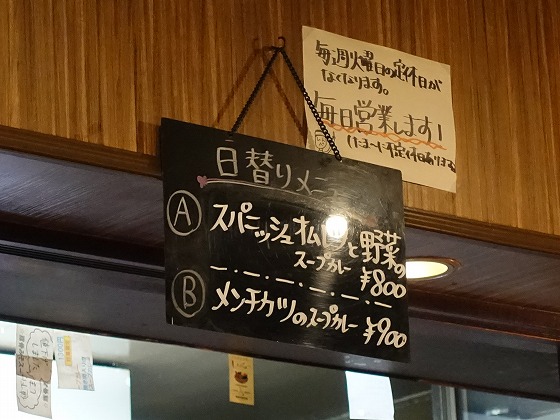 毎週火曜日の定休日が
なくなります。
毎日営業します!
不定休日あります。
日替りメニュー
A スパニッシュオムレと野菜の
スープカレー
¥800
B メンチカツのスープカレー ¥900